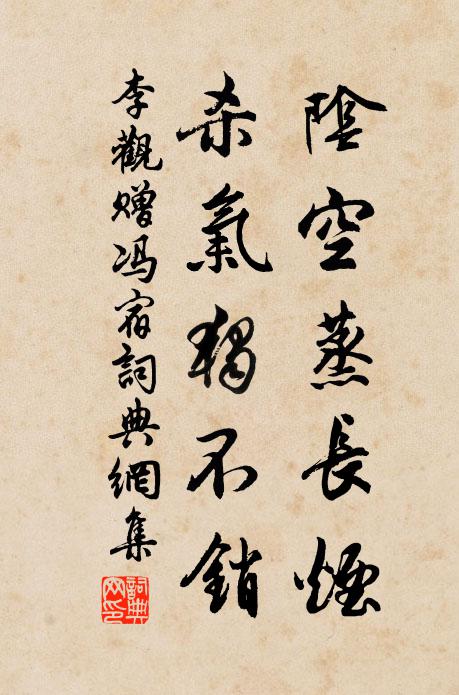 陰空蒸長煙
杀氣獨不銷
李觀贈冯宿詞典網集
詞典
网印